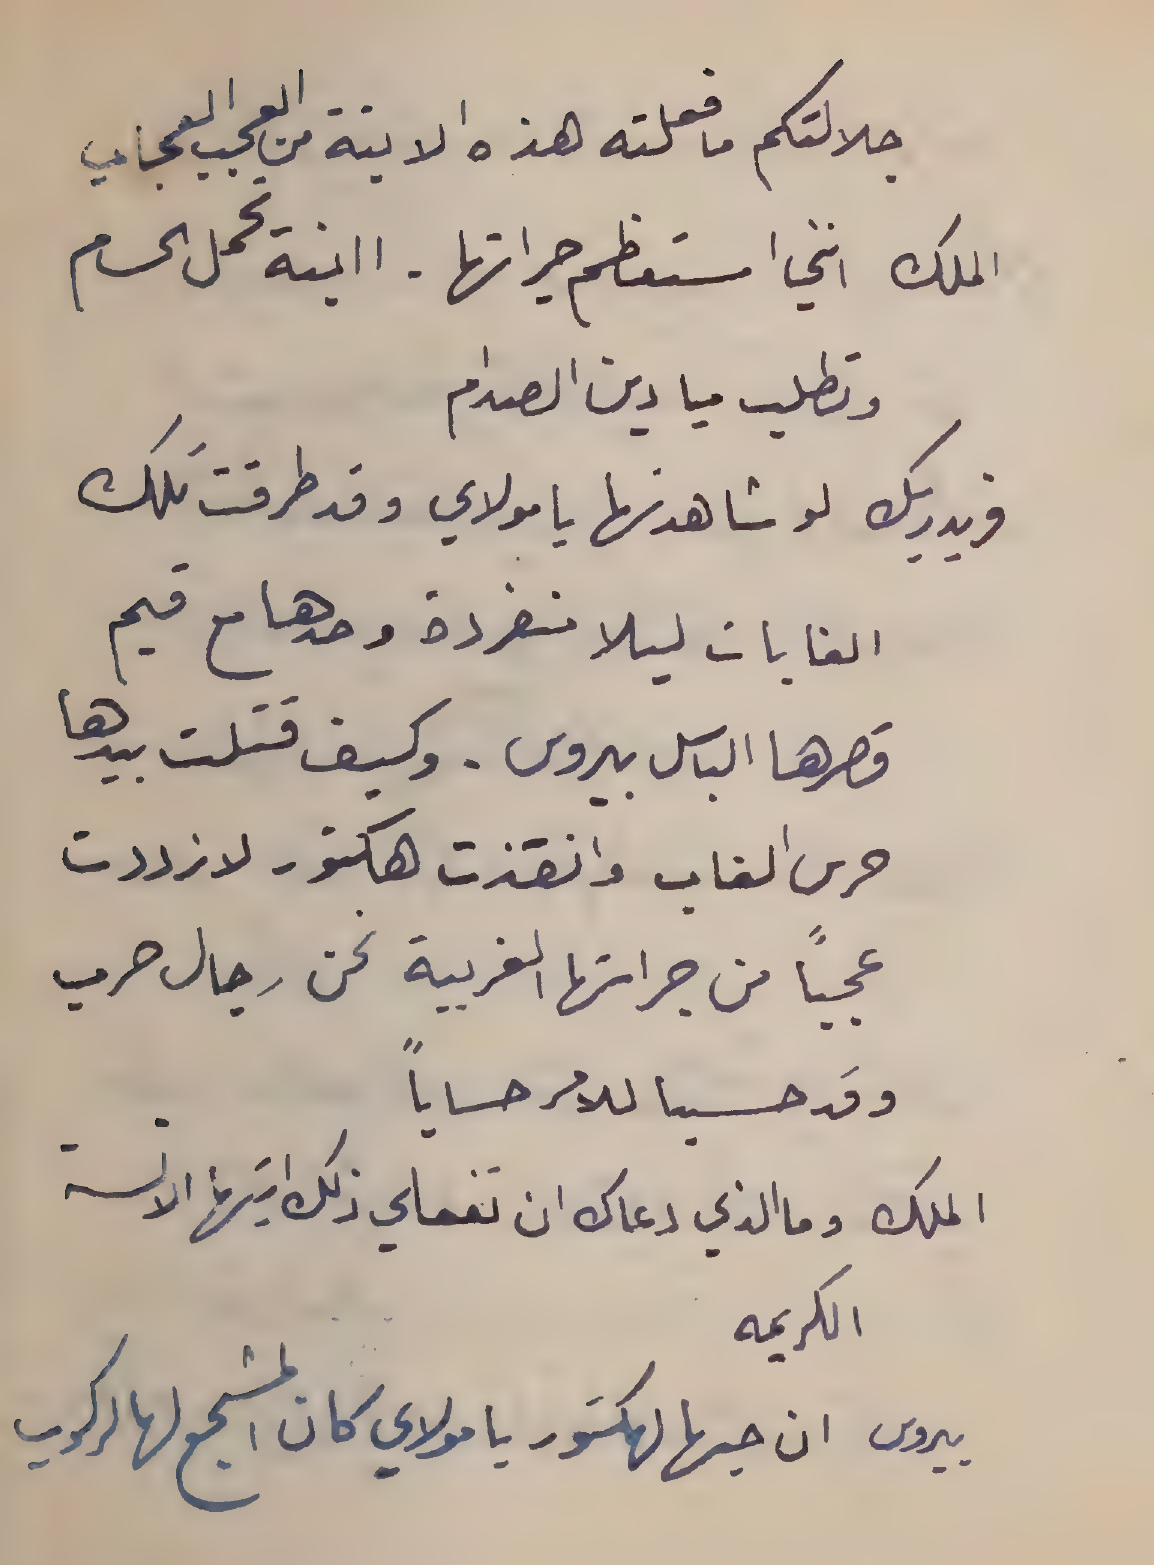 جلالتكم ما فعلته هذه الابنة من العجب العجاب
الملك انني استعظم جراتها . اابنة تحمل الحسام
وتطلب ميادين الصدام
فريدريك لو شاهدتها يا مولاي وقد طرقت تلك
الغابات ليلا منفردة وحدها مع قيم
قصرها الباسل بيروس . وكيف قتلت بيدها
حرس الغاب وانقذت هكتور لازددت
عجباً من جراتها الغريبة نحن رجال حرب
وقد حسبنا للامر حساباً
الملك وما الذي دعاك ان تفعلي ذلك ايتها الانسة
الكريمه
بيروس ان حبها لهكتور يا مولاي كان المشجع لها لركوب